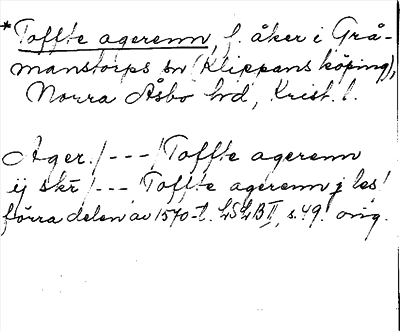 *Toffte agerenn, f. åker i Grå-
manstorps sn (Klippans köping),
Norra Åsbo hd, Krist. l.
Ager. /---/ Toffte agerenn
ij skr /--- Toffte agerenn j les!
förra delen av 1570-t. LSLB II, s. 49. orig.